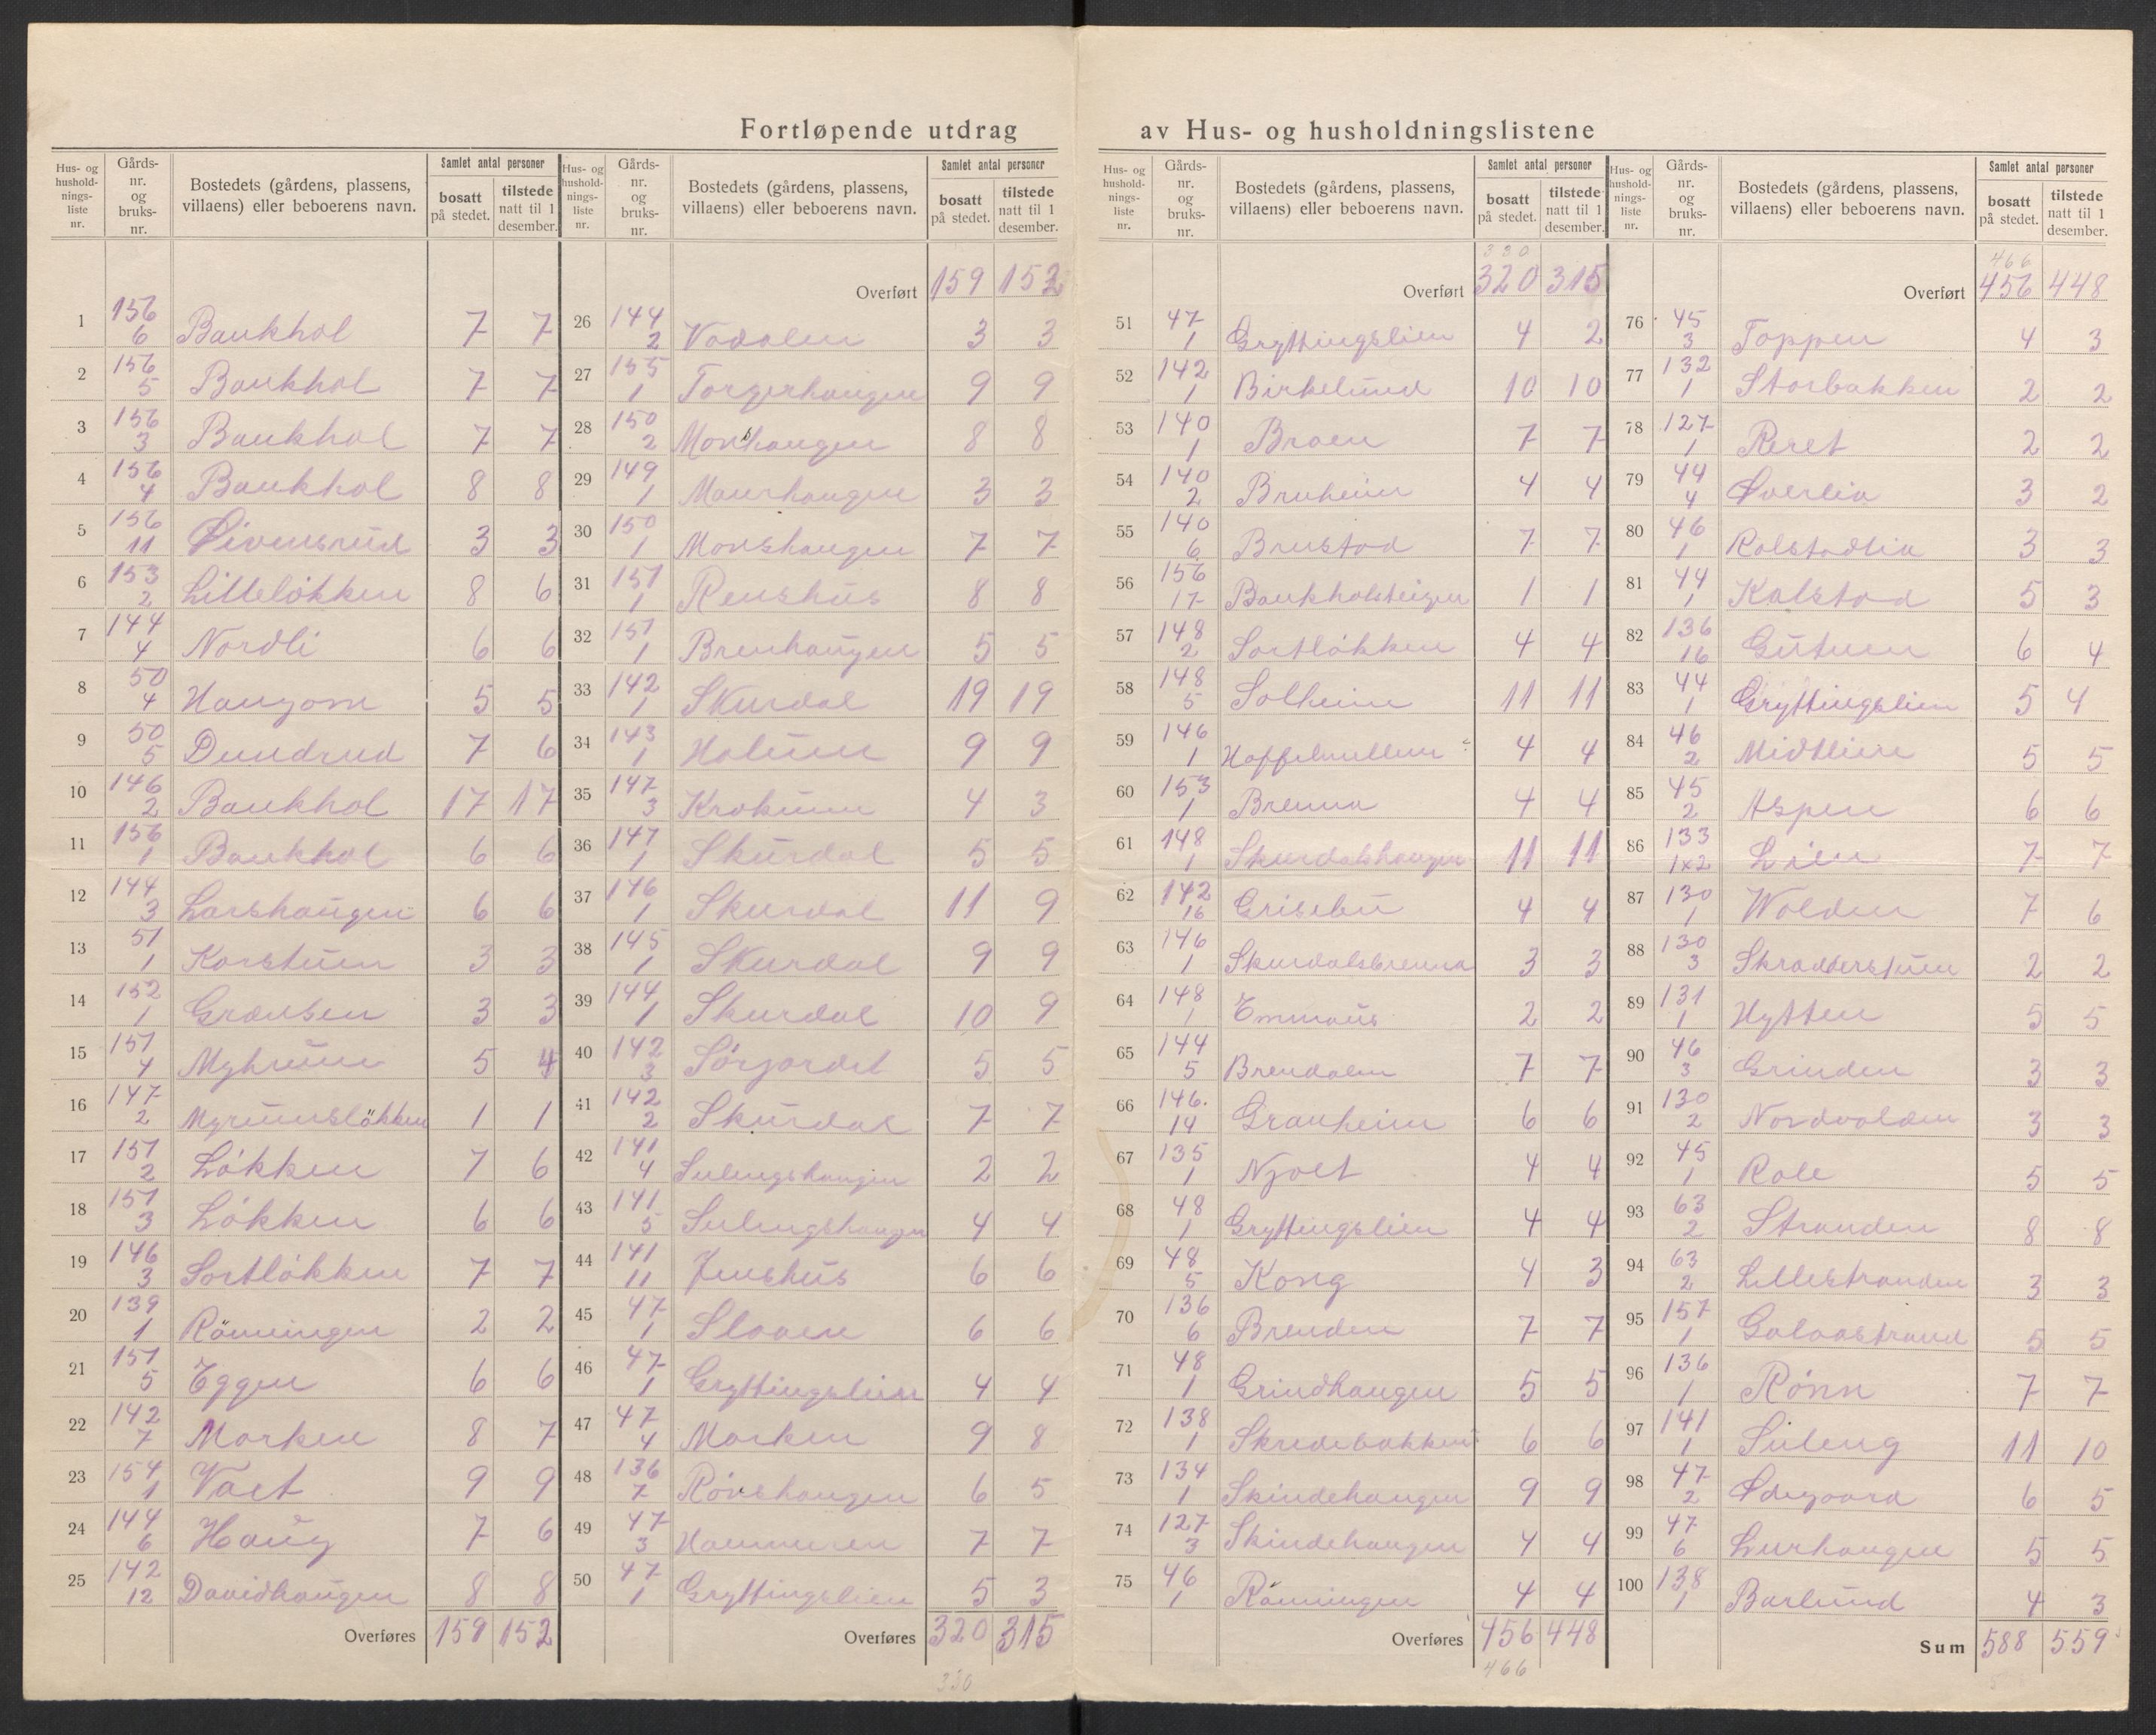 Fortløpende utdrag av Hus- og husholdningslistene
Hus- og hushold- nings- liste nr. | Gårds- nr. og bruks- nr. | Bostedets (gårdens, plassens, villaens) eller beboerens navn. | Samlet antal personer | bosatt på stedet. | tilstede natt til 1 desember.
1 156/6 Baukhol 7 7
2 156/5 Baukhol 7 7
3 156/3 Baukhol 7 7
4 156/4 Baukhol 8 8
5 156/11 Øivensrud 3 3
6 153/2 Lilleløkken 8 6
7 144/4 Nordli 6 6
8 50/4 Haugom 5 5
9 50/5 Dundrud 7 6
10 146/2 Baukhol 17 17
11 156/1 Baukhol 6 6
12 144/3 Larshaugen 6 6
13 51/1 Korstuen 3 3
14 152/1 Grænsen 3 3
15 151/4 Myhruen 5 4
16 147/2 Myruensløkken 1 1
17 151/2 Løkken 7 6
18 151/3 Løkken 6 6
19 146/3 Sortløkken 7 7
20 139/1 Rönningen 2 2
21 151/5 Eggen 6 6
22 142/7 Morken 8 7
23 154/1 Vaet 9 9
24 144/6 Haug 7 6
25 142/12 Davidhaugen 8 8
Overføres 159 152
Hus- og hushold- nings- liste nr. | Gårds- nr. og bruks- nr. | Bostedets (gårdens, plassens, villaens) eller beboerens navn. | Samlet antal personer | bosatt på stedet. | tilstede natt til 1 desember.
Overført 159 152
26 144/2 Vadalen 3 3
27 155/1 Torgerhaugen 9 9
28 150/2 Monshaugen 8 8
29 149/1 Maurhaugen 3 3
30 150/1 Monshaugen 7 7
31 151/1 Renshus 8 8
32 151/1 Brenhaugen 5 5
33 142/1 Skurdal 19 19
34 143/1 Holuen 9 9
35 147/3 Krokuen 4 3
36 147/1 Skurdal 5 5
37 146/1 Skurdal 11 9
38 145/1 Skurdal 9 9
39 144/1 Skurdal 10 9
40 142/3 Sørjordet 5 5
41 142/2 Skurdal 7 7
42 141/4 Sulungshaugen 2 2
43 141/5 Sulungshaugen 4 4
44 141/11 Jenshus 6 6
45 47/1 Sloaen 6 6
46 47/1 Gryttingslien 4 4
47 47/4 Morken 9 8
48 136/7 Rönshaugen 6 5
49 47/3 Hammeren 7 7
50 47/1 Gryttingslien 5 3
Overføres 320 315
330
Hus- og hushold- nings- liste nr. | Gårds- nr. og bruks- nr. | Bostedets (gårdens, plassens, villaens) eller beboerens navn. | Samlet antal personer | bosatt på stedet. | tilstede natt til 1 desember.
330
Overført 320 315
51 47/1 Gryttingslien 4 2
52 142/1 Birkelund 10 10
53 140/1 Broen 7 7
54 140/2 Bruheim 4 4
55 140/6 Brustad 7 7
56 156/17 Baukholsteigen 1 1
57 148/2 Sortløkken 4 4
58 148/5 Solheim 11 11
59 146/1 4 4
60 153/1 Brenna 4 4
61 148/1 Skurdalshaugen 11 11
62 142/16 Grisebu 4 4
63 146/1 Skurdalsbrenna 3 3
64 148/1 Emmaus 2 2
65 144/5 Brendalen 7 7
66 146./14 Granheim 6 6
67 135/1 Njolt 4 4
68 48/1 Gryttingslien 4 4
69 48/5 Kong 4 3
70 136/6 Brenden 7 7
71 48/1 Grindhaugen 5 5
72 138/1 Skredebakken 6 6
73 134/1 Skindehaugen 9 9
74 127/3 Skindehaugen 4 4
75 46/1 Rönningen 4 4
Overføres 456 448
466
Hus- og hushold- nings- liste nr. | Gårds- nr. og bruks- nr. | Bostedets (gårdens, plassens, villaens) eller beboerens navn. | Samlet antal personer | bosatt på stedet. | tilstede natt til 1 desember.
466
Overført 456 448
76 45/3 Toppen 4 3
77 132/1 Storbakken 2 2
78 127/1 Reret 2 2
79 44/4 Øverlia 3 2
80 46/1 Kolstadlia 3 3
81 44/1 Kolstad 5 3
82 136/16 Gutuen 6 4
83 44/1 Gryttingslien 5 4
84 46/2 Midtlien 5 5
85 45/2 Aspen 6 6
86 133/1x2 Lien 7 7
87 130/1 Wolden 7 6
88 130/3 Skrædderstuen 2 2
89 131/1 Hytten 5 5
90 46/3 Grinden 3 3
91 130/2 Nordvolden 3 3
92 45/1 Role 5 5
93 63/2 Stranden 8 8
94 63/2 Lillestranden 3 3
95 157/1 Golaastrand 5 5
96 136/1 Rønn 7 7
97 141/1 Suleng 11 10
98 47/2 Ødegaard 6 5
99 47/6 Lurhaugen 5 5
100 138/1 Barlund 4 3
Sum 588 559